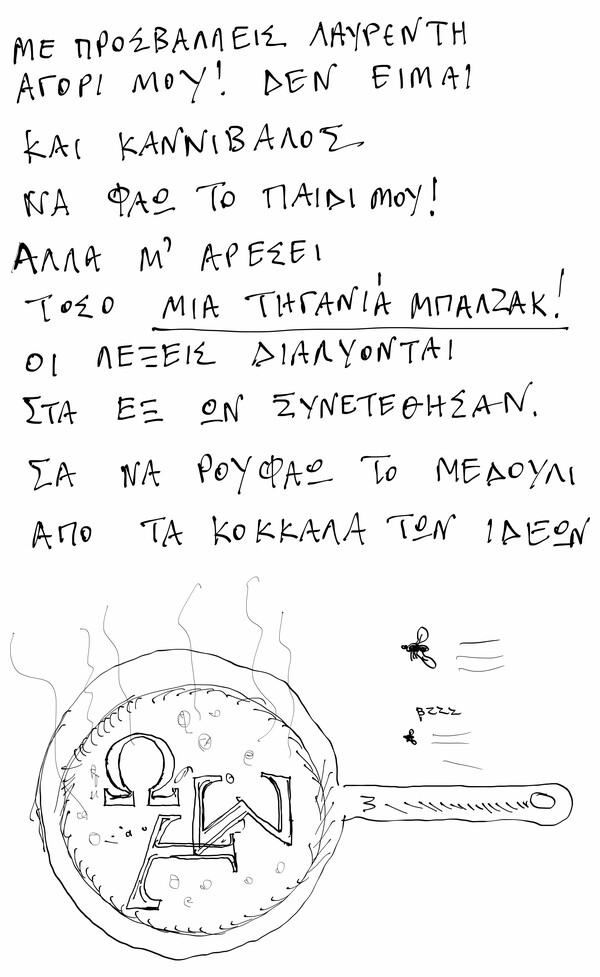 ΜΕ ΠΡΟΣΒΑΛΛΕΙΣ ΛΑΥΡΕΝΤΗ
ΑΓΟΡΙ ΜΟΥ! ΔΕΝ ΕΙΜΑΙ
ΚΑΙ ΚΑΝΝΙΒΑΛΟΣ
ΝΑ ΦΑΩ ΤΟ ΠΑΙΔΙ ΜΟΥ!
ΑΛΛΑ Μ' ΑΡΕΣΕΙ
ΤΟΣΟ ΜΙΑ ΤΗΓΑΝΙΆ ΜΠΑΛΖΑΚ!
ΟΙ ΛΕΞΕΙΣ ΔΙΑΛΥΟΝΤΑΙ
ΣΤΑ ΕΞ ΩΝ ΣΥΝΕΤΕΘΗΣΑΝ.
ΣΑ ΝΑ ΡΟΥΦΑΩ ΤΟ ΜΕΔΟΥΛΙ
ΑΠΟ ΤΑ ΚΟΚΚΑΛΑ ΤΩΝ ΙΔΕΩΝ
ΒΖΖΖ
Ω Σ